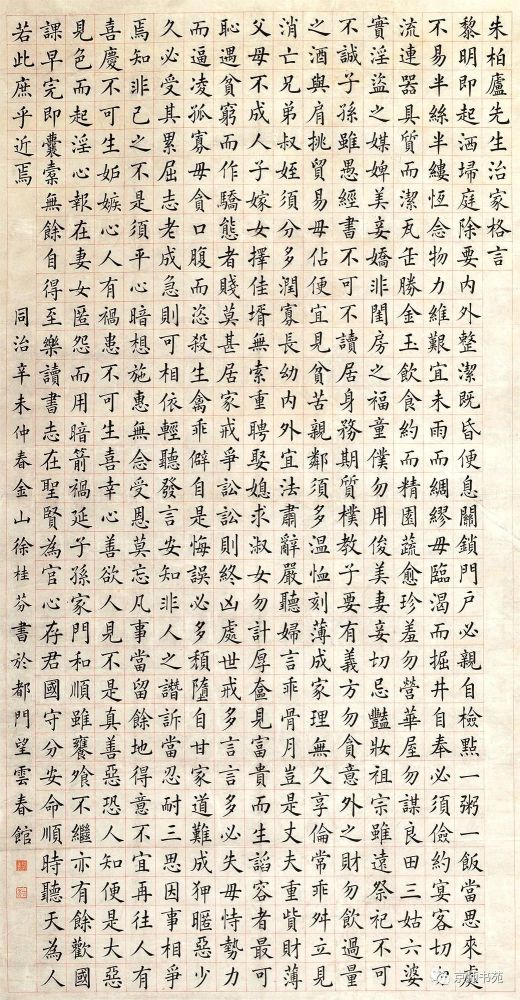 朱柏廬先生治家格言
黎明即起洒掃庭除要內外整潔既昏便息關鎖門户必親自檢點一粥一飯當思來處
不易半絲半縷恆念物力維艱宜未雨而綢繆毋臨渴而掘井自奉必須儉約宴客切勿
流連器具質而潔瓦缶勝金玉飲食約而精園蔬愈珍羞勿營華屋勿謀良田三姑六婆
實淫盜之媒婢美妾嬌非閨房之福童僕勿用俊美妻妾切忌豔妝祖宗雖遠祭祀不可
不誠子孫雖愚經書不可不讀居身務期質樸教子要有義方勿貪意外之財勿飲過量
之酒與肩挑貿易毋佔便宜見貧苦親鄰須多温恤刻薄成家理無久享倫常乖舛立見
消亡兄弟叔姪須分多潤寡長幼內外宜法肅辭嚴聽婦言乖骨月豈是丈夫重貲財薄
父母不成人子嫁女擇佳壻無索重聘娶媳求淑女勿計厚奩見富貴而生諂容者最可
恥遇貧窮而作驕態者賤莫甚居家戒爭訟訟則終凶處世戒多言言多必失毋恃勢力
而逼凌孤寡毋貪口腹而恣殺生禽乖僻自是悔誤必多頹隳自甘家道難成狎暱惡少
久必受其累屈志老成急則可相依輕聽發言安知非人之譖訴當忍耐三思因事相爭
焉知非己之不是須平心暗想施惠無念受恩莫忘凡事當留餘地得意不宜再往人有
喜慶不可生妬嫉心人有禍患不可生喜幸心善欲人見不是真善惡恐人知便是大惡
見色而起淫心報在妻女匿怨而用暗箭禍延子孫家門和順雖饔飧不繼亦有餘歡國
課早完即囊橐無餘自得至樂讀書志在聖賢為官心存君國守分安命順時聽天為人
若此庶乎近焉
同治辛未仲春金山徐桂芬書於都門望雲春館